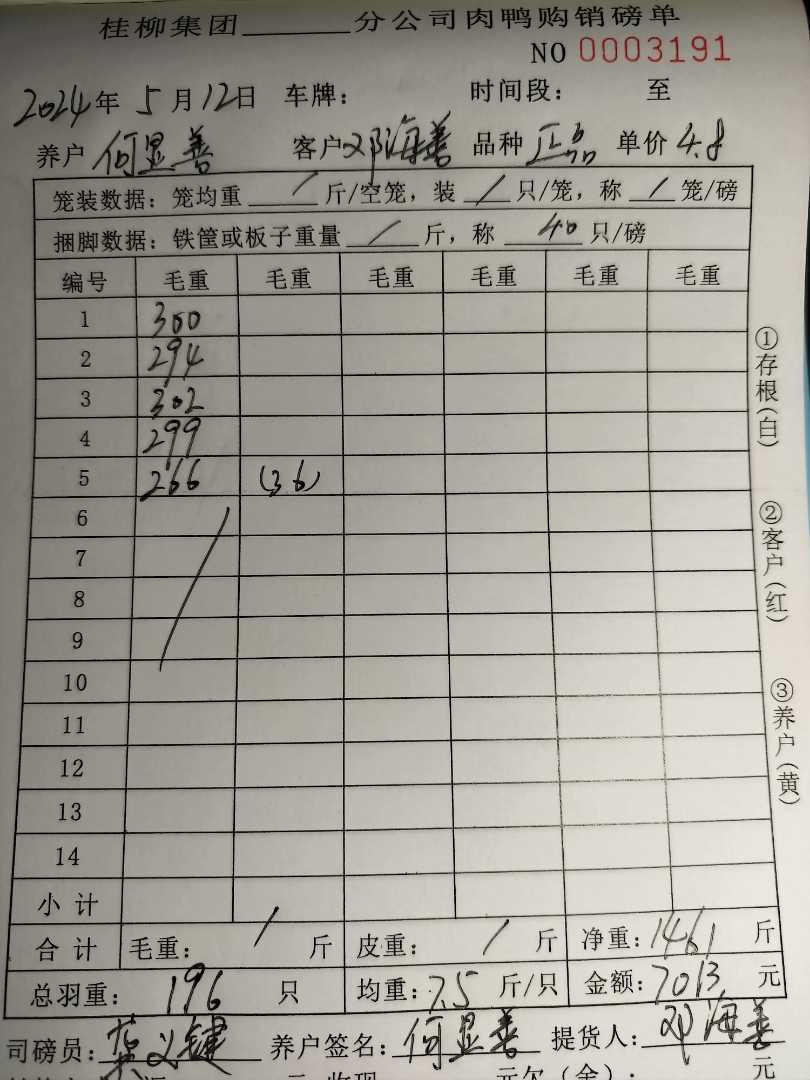 桂柳集团______分公司肉鸭购销磅单
NO 0003191
2024年 5月12日 车牌: 时间段: 至
养户 何显善 客户 邓海善 品种 正品 单价 4.8
笼装数据: 笼均重 / 斤/空笼, 装 / 只/笼, 称 / 笼/磅
捆脚数据: 铁筐或板子重量 / 斤, 称 40 只/磅
编号 毛重 毛重 毛重 毛重 毛重 毛重
1 300
2 294
3 302
4 299
5 266 (36)
6
7
8
9
10
11
12
13
14
小计
合计 毛重: / 斤 皮重: / 斤 净重: 1461 斤
总羽重: 196 只 均重: 7.5 斤/只 金额: 7013 元
司磅员: 义键 养户签名: 何显善 提货人: 邓海善
元 收现 元欠(余): 元
①存根(白)
②客户(红)
③养户(黄)